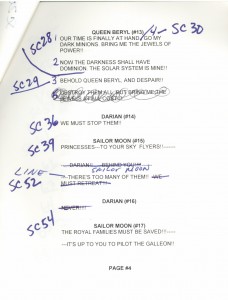 QUEEN BERYL (#13)
SC28 1 OUR TIME IS FINALLY AT HAND, GO MY 4- SC 30
DARK MINIONS. BRING ME THE JEWELS OF
POWER!!
2 NOW THE DARKNESS SHALL HAVE
DOMINION. THE SOLAR SYSTEM IS MINE!!
SC29 3 BEHOLD QUEEN BERYL AND DESPAIR!!
DESTROY THEM ALL, BUT BRING ME THE
JEWELS
DARIAN (#14)
SC36 WE MUST STOP THEM!!
SAILOR MOON (#15)
SC39 PRINCESSES--TO YOUR SKY FLYERS!!-----
DARIAN!! BEHIND YOU!!
LINE SAILOR MOON
SC52 THERE'S TOO MANY OF THEM!! WE
MUST RETREAT!!
DARIAN (#16)
NEVER!!!
SAILOR MOON (#17)
SC54 THE ROYAL FAMILIES MUST BE SAVED!!-----
---IT'S UP TO YOU TO PILOT THE GALLEON!!
PAGE #4